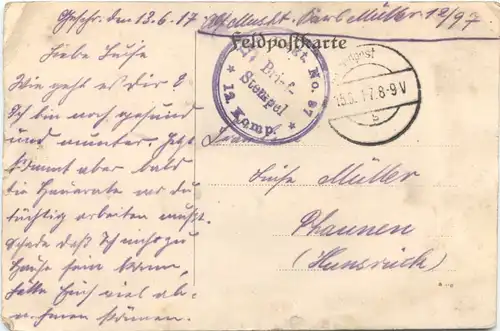 Geschr. den 13.6.17
Abs. Muskt. Karl Müller 12/97
Feldpostkarte
Inf. Regt. No. 97
Brief-
Stempel
12. Komp.
Feldpost
15.6.17.8-9V
Liebe Luise
Wie geht es dir?
Ich bin noch gesund
und munter. Jetzt
kommt aber bald
die Heuernte wo du
tüchtig arbeiten mußt.
Schade daß Ich nicht zu
Hause sein kann,
hätte Euch viel ab-
nehmen können.
Luise Müller
Rhaunen
(Hunsrück)